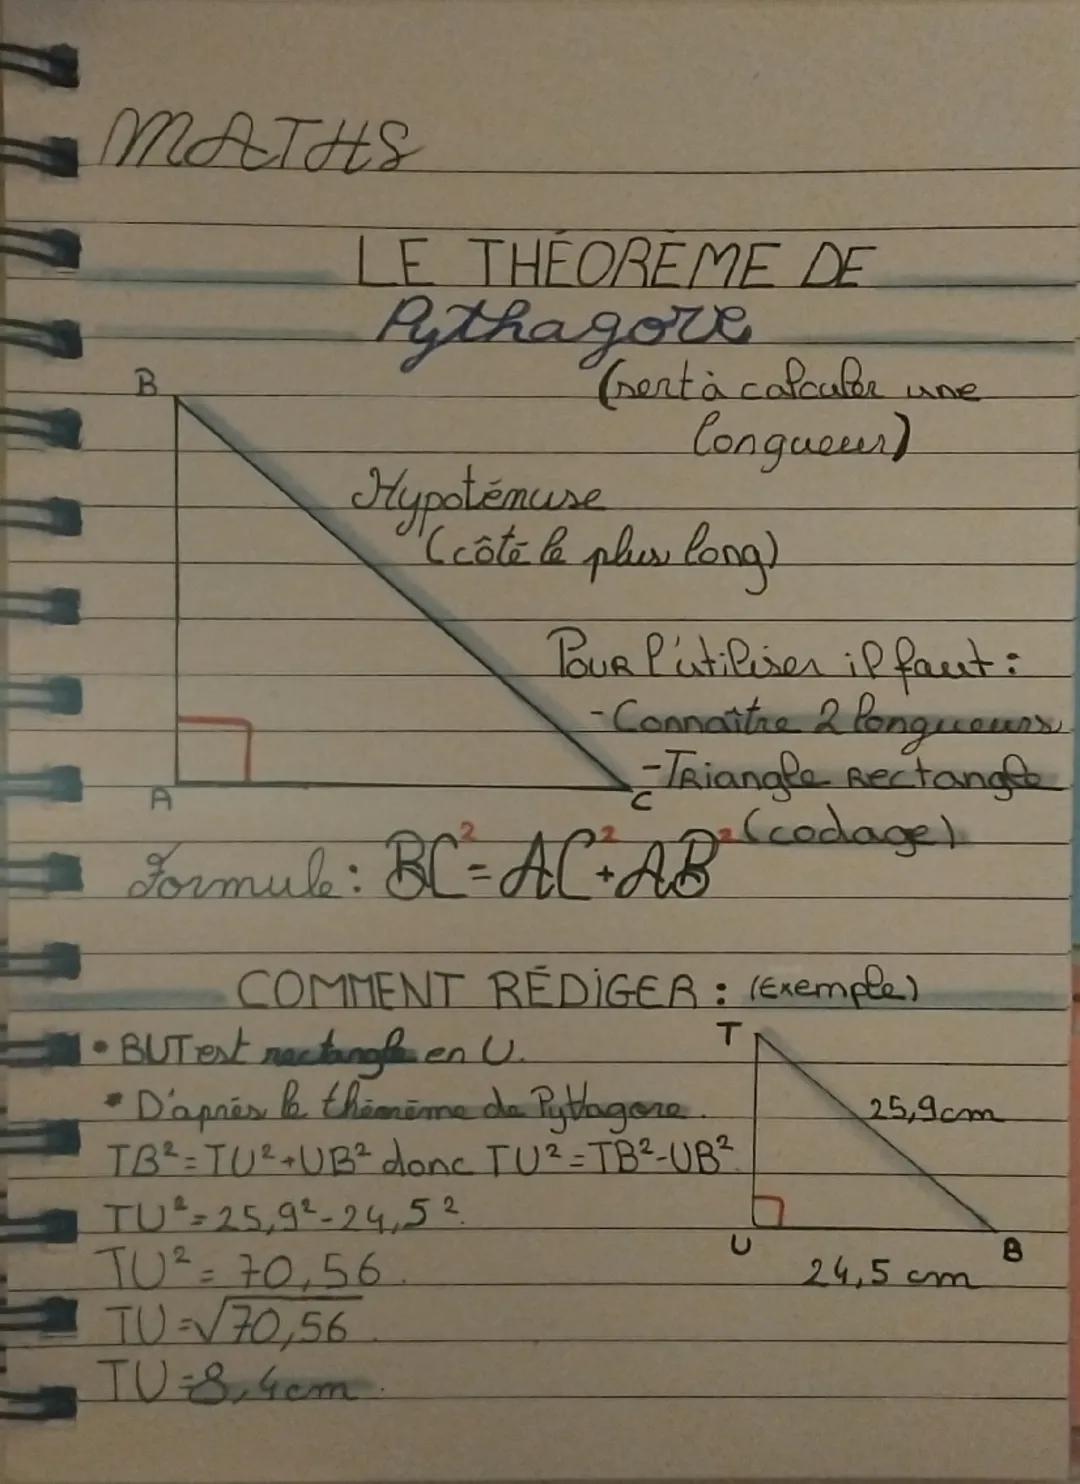 MATHS
LE THÉORÈME DE
Pythagore
(sert à calculer une
longueur)
B
Hypoténuse
(côté le plus long)
Pour l'utiliser il faut :
- Connaître 2 longueurs
- Triangle Rectangle
(codage)
A
C
Formule : BC² = AC² + AB²
COMMENT RÉDIGER : (Exemple)
• BUT est rectangle en U.
• D'après le théorème de Pythagore.
TB² = TU² + UB² donc TU² = TB² - UB²
TU² = 25,9² - 24,5².
TU² = 70,56.
TU = √70,56.
TU = 8,4 cm.
T
25,9 cm
U
B
24,5 cm